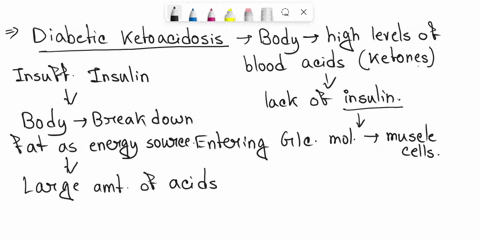 ⇒ Diabetic Ketoacidosis → Body → high levels of
blood acids (Ketones)
↓
lack of insulin.
↓
Entering Glc. mol. → muscle
cells.
Insuff. Insulin
↓
Body → Break down
fat as energy source.
↓
Large amt. of acids